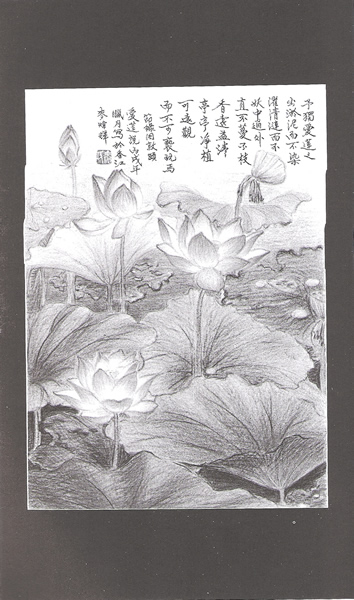 予獨愛蓮之
出淤泥而不染
濯清漣而不
妖中通外
直不蔓不枝
香遠益清
亭亭淨植
可遠觀
而不可褻玩焉
節錄周敦頤
愛蓮說丙戌年
臘月寫於江